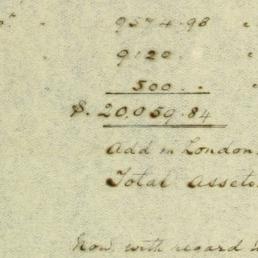 9574.98
9120.
500..
$.20,059.84
Add in London
Total Assets
Now, with regard